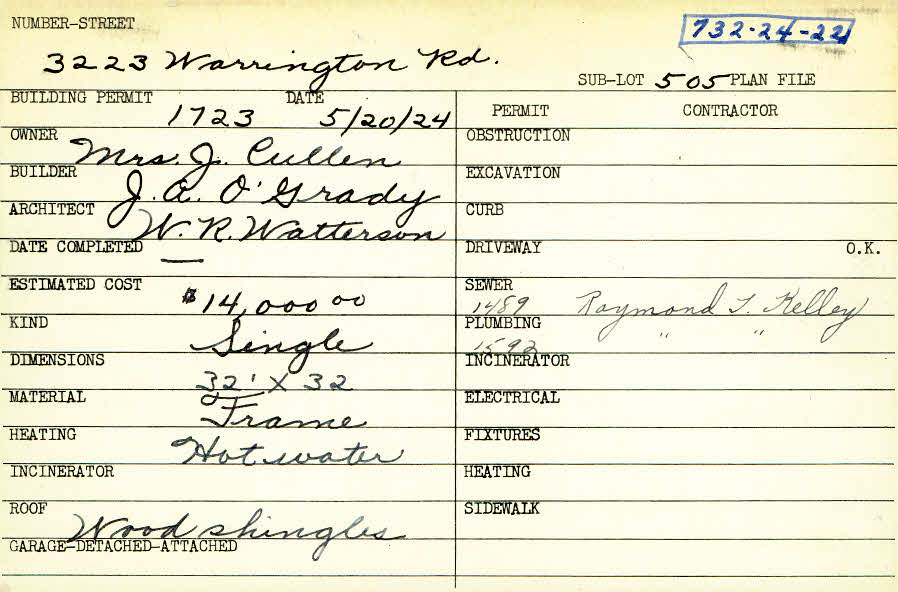 NUMBER-STREET
732-24-22
3223 Warrington Rd.
SUB-LOT 505 PLAN FILE
BUILDING PERMIT DATE
1723 5/20/24
PERMIT CONTRACTOR
OWNER Mrs. J. Cullen
BUILDER J. A. O'Grady
ARCHITECT W. R. Watterson
DATE COMPLETED —
ESTIMATED COST $14,000 00
KIND Single
DIMENSIONS 32' X 32
MATERIAL Frame
HEATING Hot water
INCINERATOR
ROOF Wood shingles
GARAGE-DETACHED-ATTACHED
OBSTRUCTION
EXCAVATION
CURB
DRIVEWAY O.K.
SEWER
1489 Raymond T. Kelley
PLUMBING " "
1592
INCINERATOR
ELECTRICAL
FIXTURES
HEATING
SIDEWALK